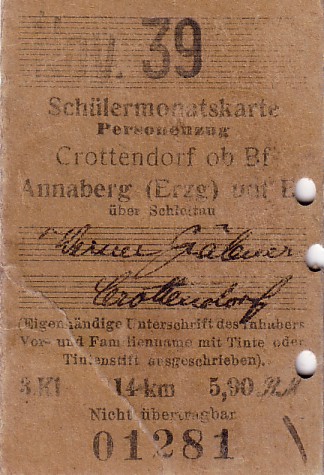 Nov. 39
Schülermonatskarte
Personenzug
Crottendorf ob Bf
Annaberg (Erzg) unt B
über Schlettau
Werner Gräbner
Crottendorf
(Eigenhändige Unterschrift des Inhabers
Vor- und Familienname mit Tinte oder
Tintenstift ausgeschrieben).
3.Kl. 14 km 5,90 RM
Nicht übertragbar
01281